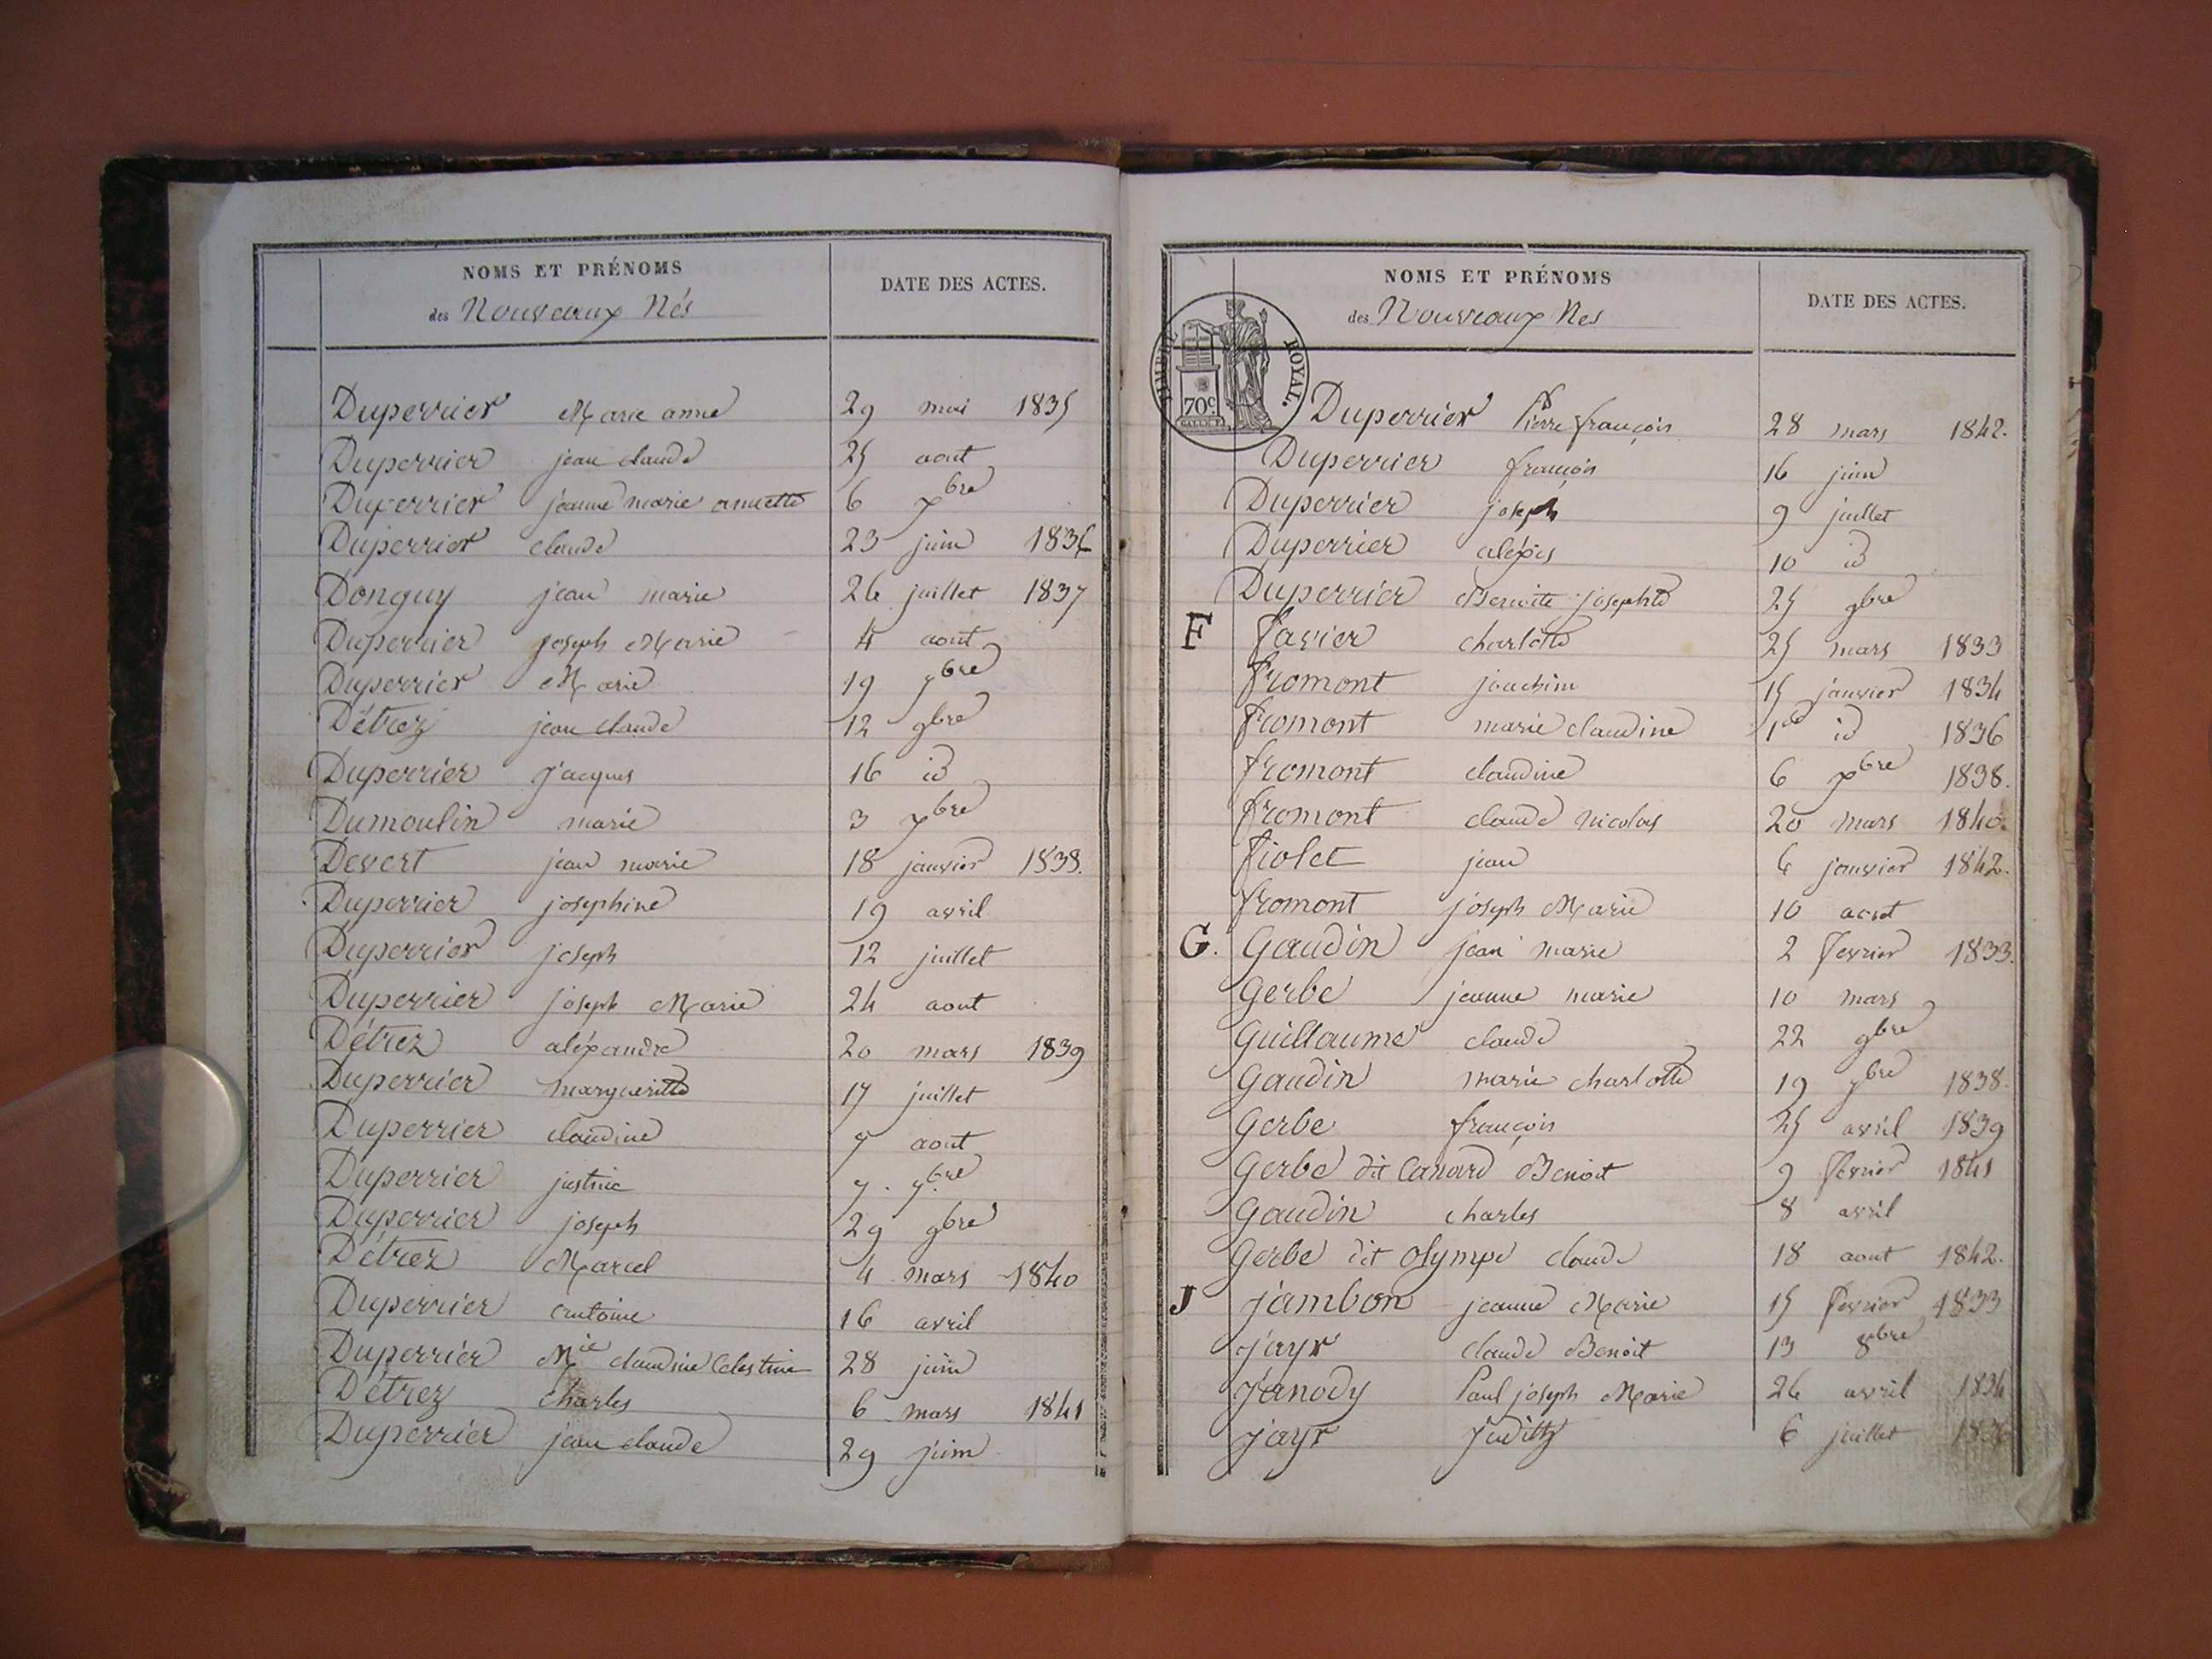 NOMS ET PRÉNOMS
des Nouveaux Nés
DATE DES ACTES.
Duperrier Marie anne 29 mai 1835
Duperrier jean claude 25 aout
Duperrier jeanne marie annette 6 xbre
Duperrier claude 23 juin 1836
Donguy jean marie 26 juillet 1837
Duperrier joseph Marie 4 aout
Duperrier Marie 19 7bre
Détrez jean claude 12 9bre
Duperrier jacques 16 id
Dumoulin marie 3 xbre
Devert jean marie 18 janvier 1838.
Duperrier josephine 19 avril
Duperrier joseph 12 juillet
Duperrier joseph Marie 24 aout
Détrez aléxandre 20 mars 1839
Duperrier margueritte 17 juillet
Duperrier claudine 7 aout
Duperrier justine 7. 7bre
Duperrier joseph 29 9bre
Détrez Marcel 4 mars 1840
Duperrier antoine 16 avril
Duperrier Mie claudine Celestine 28 juin
Détrez charles 6 mars 1841
Duperrier jean claude 29 juin
NOMS ET PRÉNOMS
des Nouveaux Nes
DATE DES ACTES.
TIMBRE ROYAL.
70c.
Duperrier Pierre françois 28 mars 1842.
Duperrier françois 16 juin
Duperrier joseph 9 juillet
Duperrier aléxis 10 id
Duperrier Benoite josephte 25 9bre
F favier charlotte 25 mars 1833
fromont joachim 15 janvier 1834
fromont marie claudine 1er id 1836
fromont claudine 6 xbre 1838.
fromont claude nicolas 20 mars 1840.
fiolet jean 6 janvier 1842.
fromont joseph Marie 10 aout
G. Gaudin jean marie 2 fevrier 1833.
Gerbe jeanne marie 10 mars
Guillaume claude 22 9bre
Gaudin marie charlotte 19 7bre 1838.
Gerbe françois 25 avril 1839
Gerbe dit Canard Benoit 9 février 1841
Gaudin charles 8 avril
Gerbe dit olympe claude 18 aout 1842.
J jambon jeanne Marie 15 fevrier 1833
jayr claude Benoit 13 8bre
janody Paul joseph Marie 26 avril 1834
jayr judith 6 juillet 1836